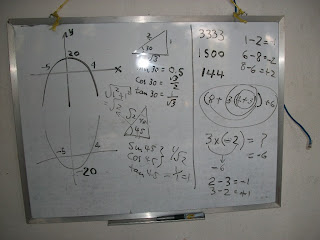 y
20
-5
4
x
-5
4
-20
2
1
30
√3
sin 30 = 0.5
cos 30 = √3/2
tan 30 = 1/√3
√2
1
45
sin 45 }
cos 45 } 1/√2
tan 45 = 1/1 = 1
3333
1500
144
1-2 = -1
6-8 = -2
8-6 = +2
3×(-2) = ?
-6
= -6
2-3 = -1
3-2 = +1